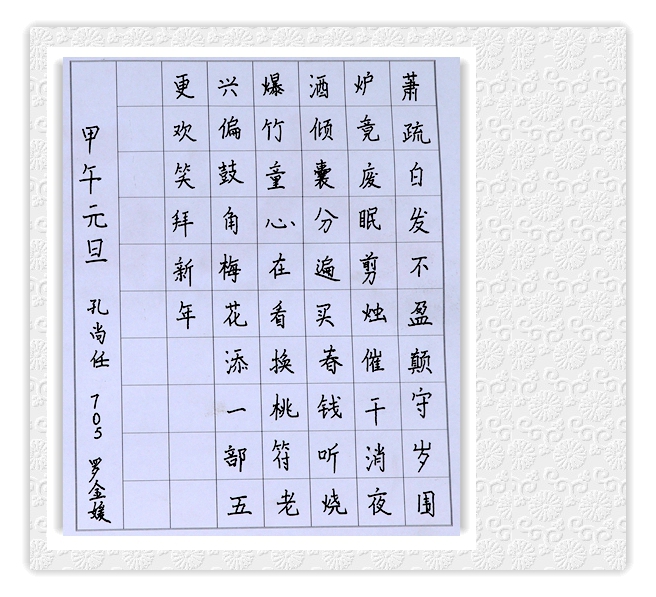 萧疏白发不盈颠守岁围
炉竟废眠剪烛催干消夜
酒倾囊分遍买春钱听烧
爆竹童心在看换桃符老
兴偏鼓角梅花添一部五
更欢笑拜新年
甲午元旦 孔尚任 705 罗金媛